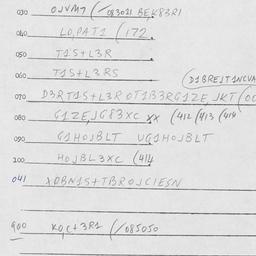 030 OJVM7 (/083021 BEK83RI
040 LO,PAT1 (172.
050 T1S+L3R
060 T1S+L3RS
(D1BREJT1NCVA
070 D3RT1S+L3R OT1B3RG1ZE,JKT (00
080 G1ZE,JG83XC xx (412 (413 (414
090 G1HOJBLT UG1HOJBLT
100 HOJBL3XC (414
041 XDBN1S+TBROJCIESN
900 KO,C+3R1 (/085050